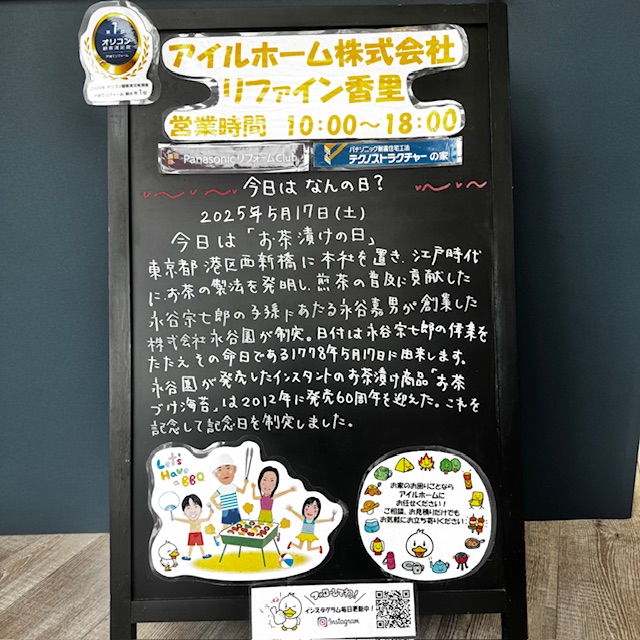 第1位
オリコン
顧客満足度
アイルホーム株式会社
リファイン香里
営業時間 10:00～18:00
Panasonicリフォームclub
パナソニック耐震住宅工法
テクノストラクチャーの家
今日は なんの日?
2025年5月17日(土)
今日は「お茶漬けの日」
東京都港区西新橋に本社を置き、江戸時代
にお茶の製法を発明し、煎茶の普及に貢献した
永谷宗七郎の子孫にあたる永谷嘉男が創業した
株式会社永谷園が制定。日付は永谷宗七郎の偉業を
たたえ その命日である1778年5月17日に由来します。
永谷園が発売したインスタントのお茶漬け商品「お茶
づけ海苔」は2012年に発売60周年を迎えた。これを
記念して記念日を制定しました。
Let's
Have
a BBQ
お家のお困りごとなら
アイルホームに
お任せください!
ご相談、お見積りだけでも
お気軽にお立ち寄りください♪
フォローしてね!
インスタグラム毎日更新中!
Instagram